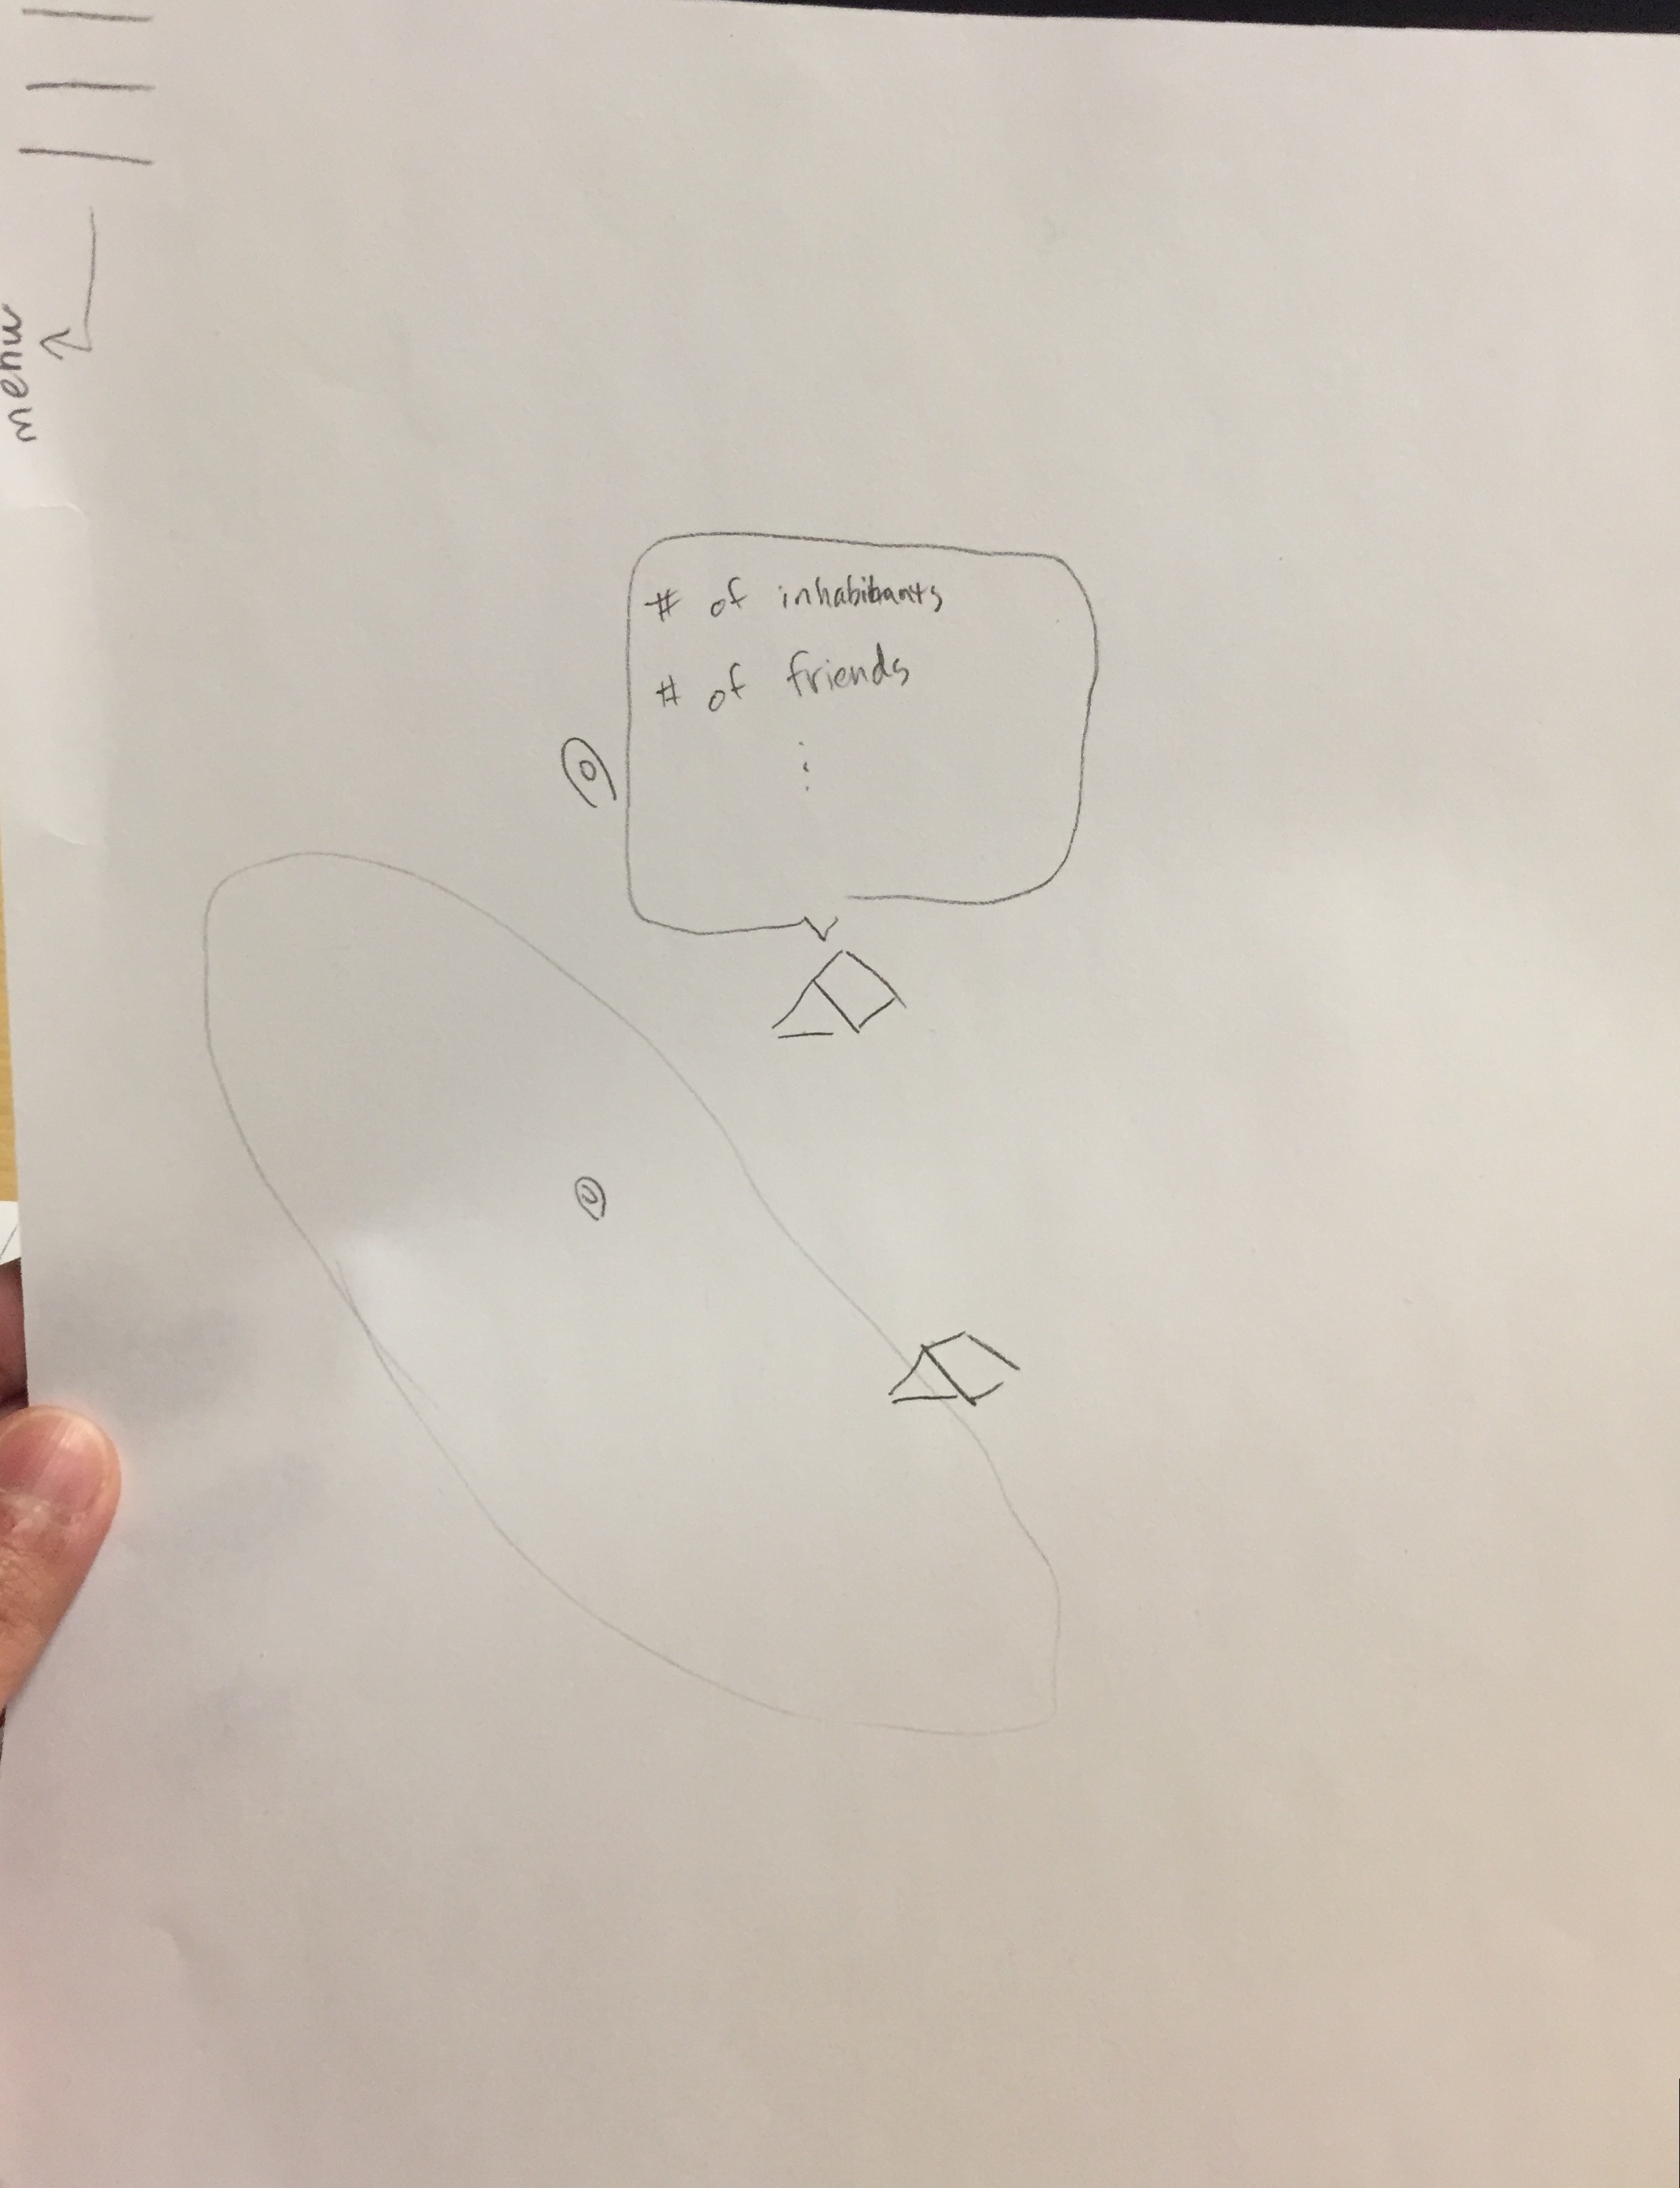 menu
# of inhabitants
# of friends
⋮